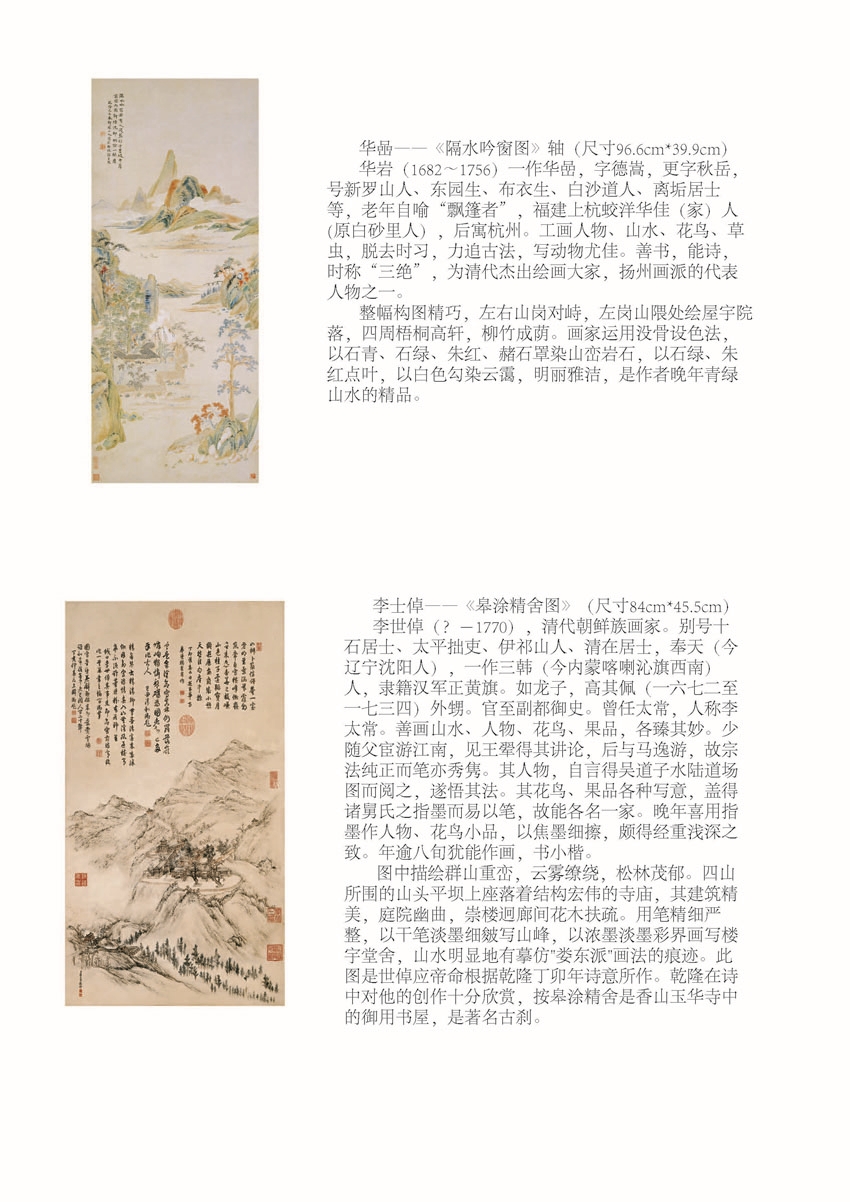 华喦——《隔水吟窗图》轴（尺寸96.6cm*39.9cm）
华岩（1682～1756）一作华喦，字德嵩，更字秋岳，
号新罗山人、东园生、布衣生、白沙道人、离垢居士
等，老年自喻“飘篷者”，福建上杭蛟洋华佳（家）人
(原白砂里人），后寓杭州。工画人物、山水、花鸟、草
虫，脱去时习，力追古法，写动物尤佳。善书，能诗，
时称“三绝”，为清代杰出绘画大家，扬州画派的代表
人物之一。
整幅构图精巧，左右山岗对峙，左岗山隈处绘屋宇院
落，四周梧桐高轩，柳竹成荫。画家运用没骨设色法，
以石青、石绿、朱红、赭石罩染山峦岩石，以石绿、朱
红点叶，以白色勾染云霭，明丽雅洁，是作者晚年青绿
山水的精品。
李士倬——《皋涂精舍图》（尺寸84cm*45.5cm）
李世倬（？－1770），清代朝鲜族画家。别号十
石居士、太平拙吏、伊祁山人、清在居士，奉天（今
辽宁沈阳人），一作三韩（今内蒙喀喇沁旗西南）
人，隶籍汉军正黄旗。如龙子，高其佩（一六七二至
一七三四）外甥。官至副都御史。曾任太常，人称李
太常。善画山水、人物、花鸟、果品，各臻其妙。少
随父宦游江南，见王翚得其讲论，后与马逸游，故宗
法纯正而笔亦秀隽。其人物，自言得吴道子水陆道场
图而阅之，遂悟其法。其花鸟、果品各种写意，盖得
诸舅氏之指墨而易以笔，故能各名一家。晚年喜用指
墨作人物、花鸟小品，以焦墨细擦，颇得经重浅深之
致。年逾八旬犹能作画，书小楷。
图中描绘群山重峦，云雾缭绕，松林茂郁。四山
所围的山头平坝上座落着结构宏伟的寺庙，其建筑精
美，庭院幽曲，崇楼迥廊间花木扶疏。用笔精细严
整，以干笔淡墨细皴写山峰，以浓墨淡墨彩界画写楼
宇堂舍，山水明显地有摹仿"娄东派"画法的痕迹。此
图是世倬应帝命根据乾隆丁卯年诗意所作。乾隆在诗
中对他的创作十分欣赏，按皋涂精舍是香山玉华寺中
的御用书屋，是著名古刹。